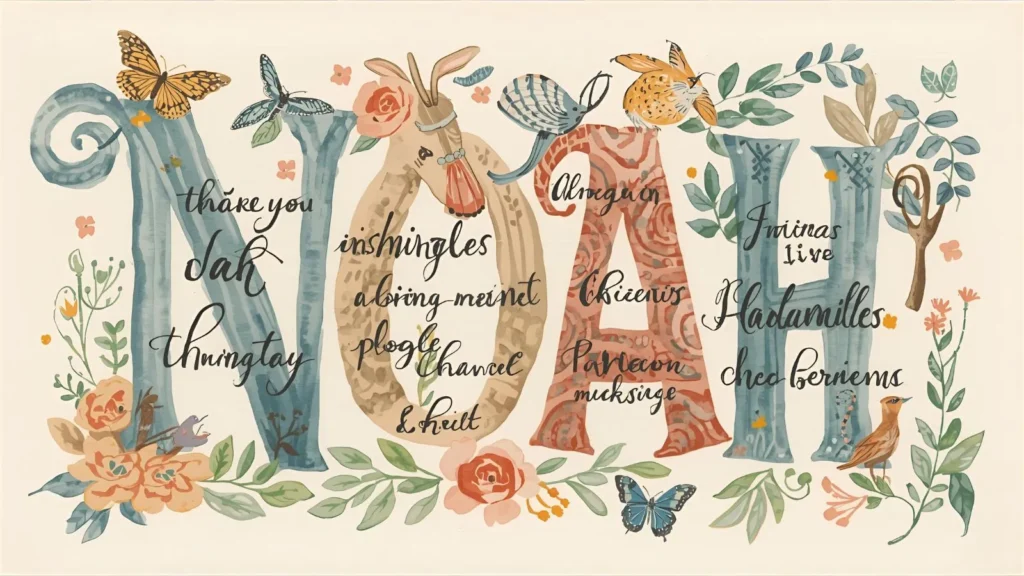 NOAH
thăre you
dah
thuingtay
inshningles
a boring meinet
plogle
Chancel
& heilt
Almeguen
Chicenis
Paviecon
mucksige
Jminas
live
Hadamilles
chec berniems